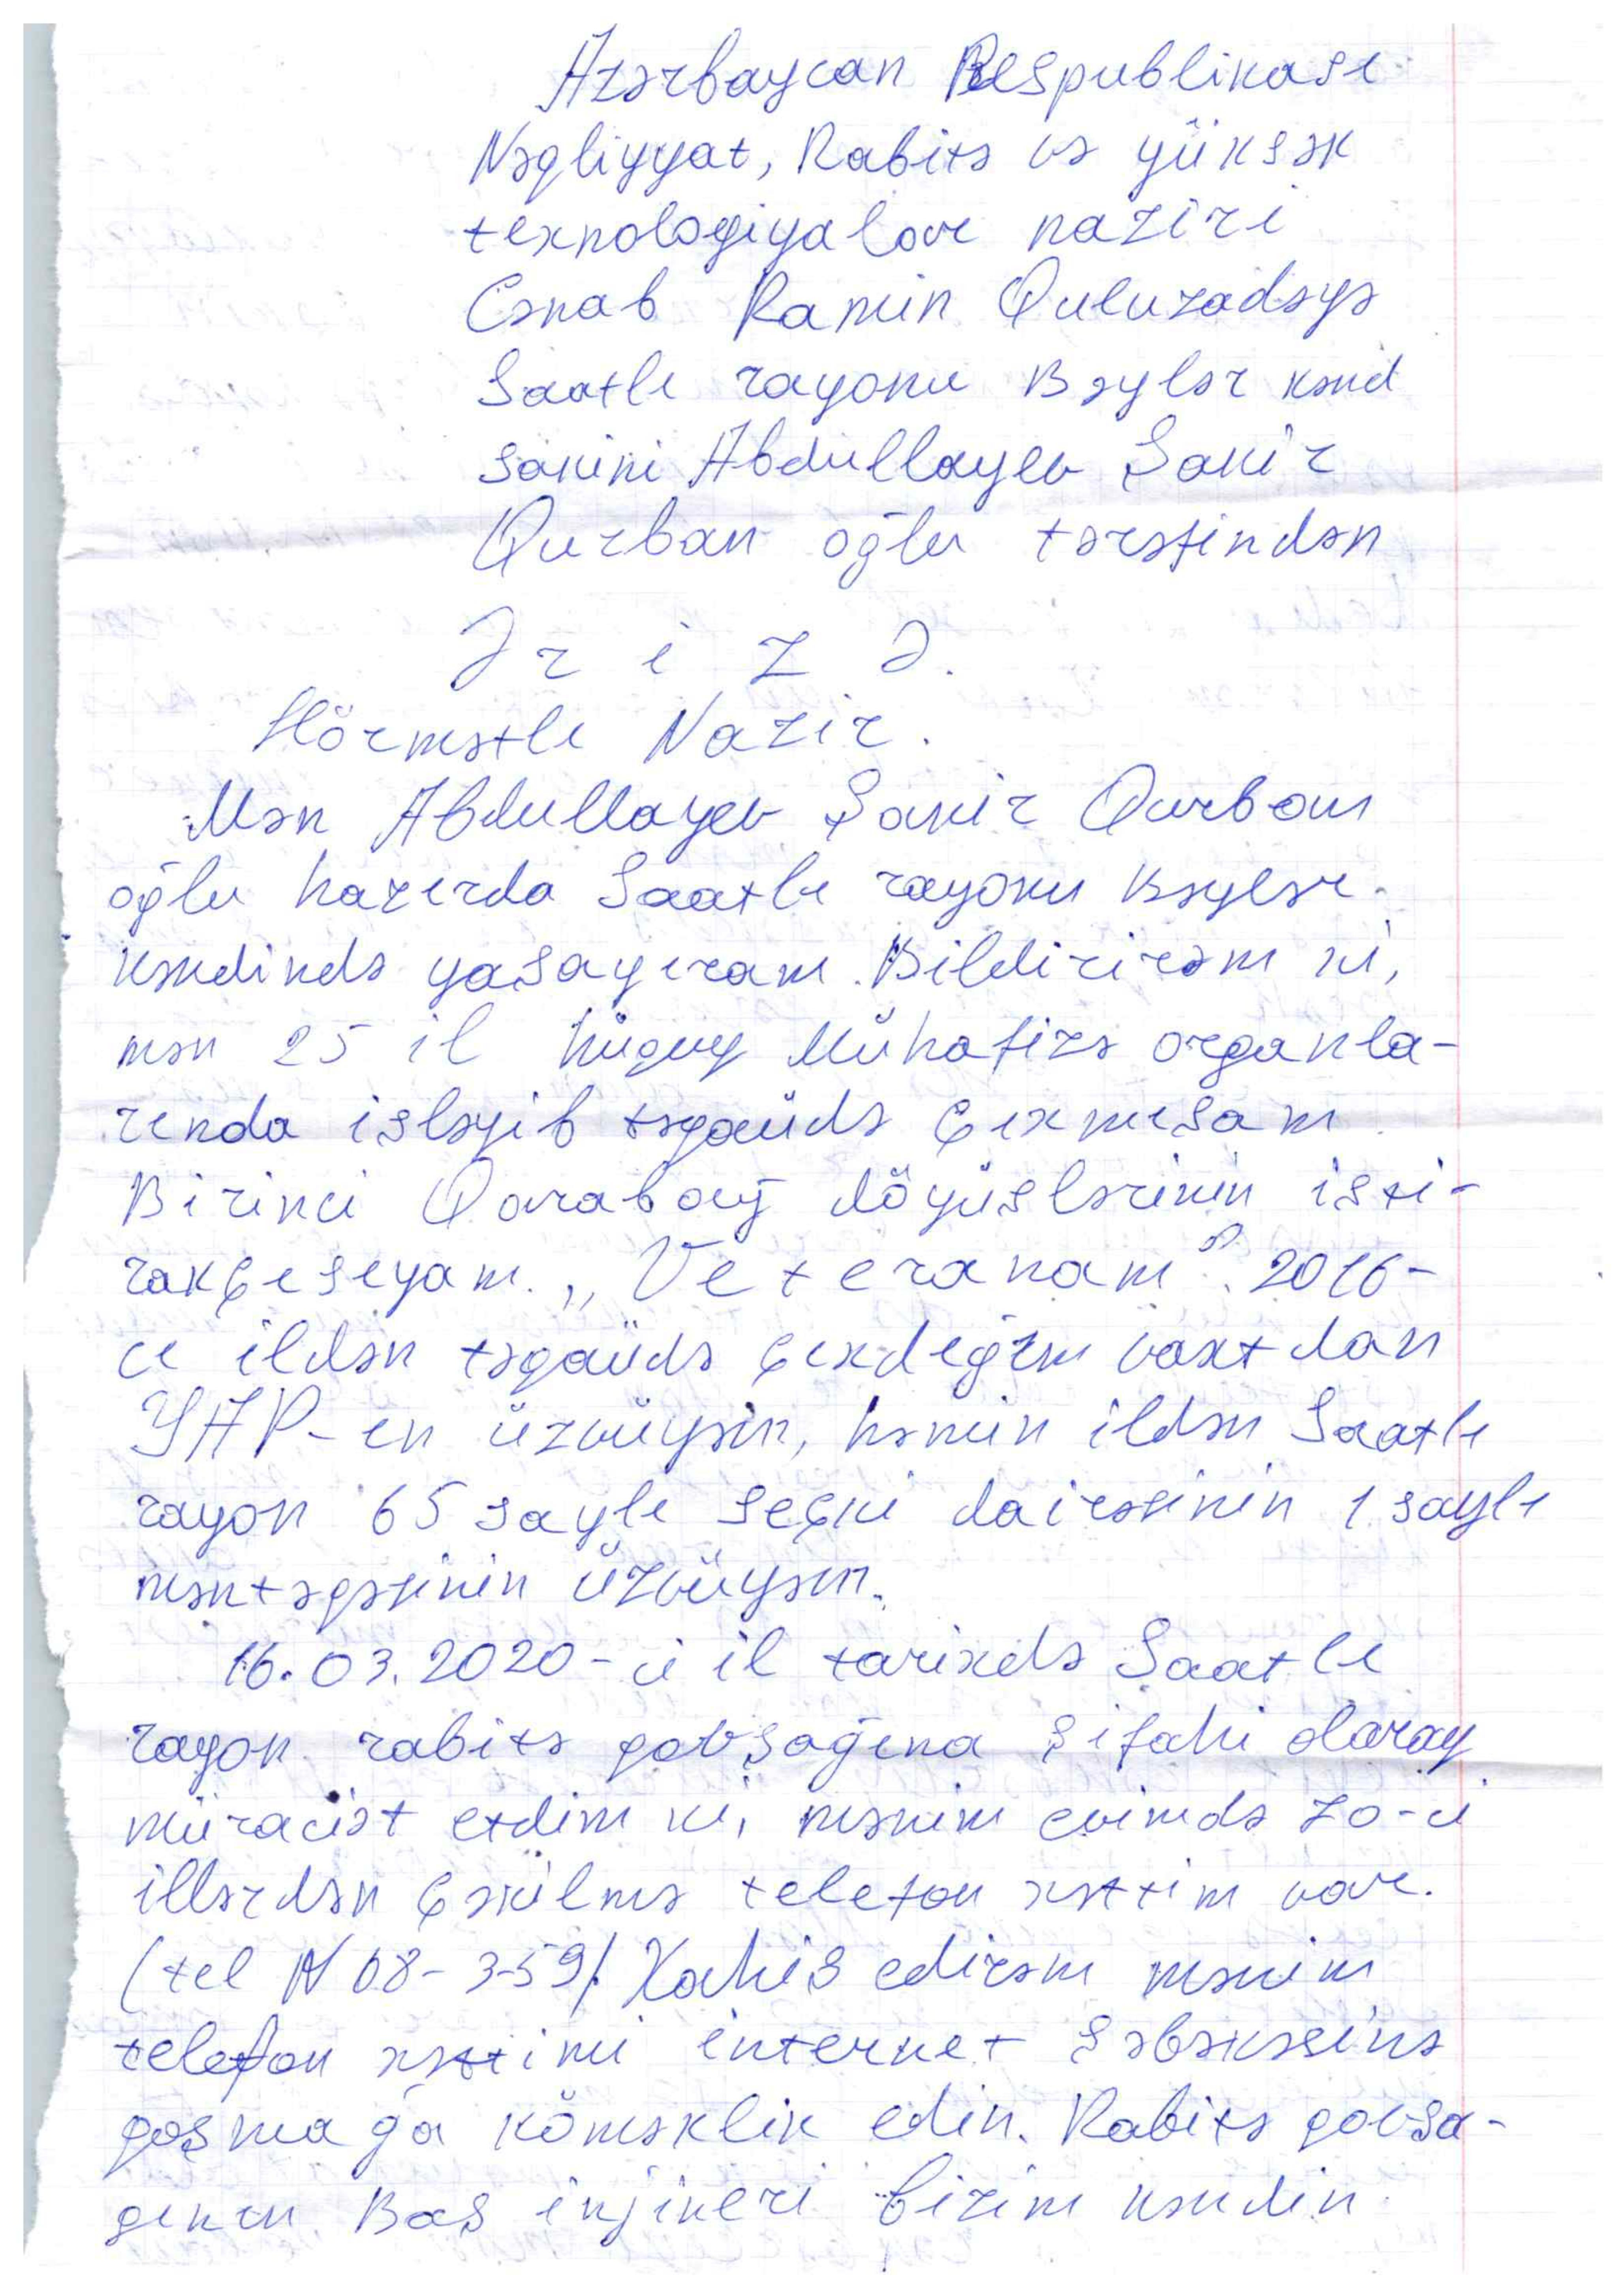 Azərbaycan Respublikası
Nəqliyyat, Rabitə və yüksək
texnologiyalar naziri
Cənab Ramin Quluzadəyə
Saatlı rayonu Bəylər kənd
sakini Abdullayev Şakir
Qurban oğlu tərəfindən
Ə r i z ə.
Hörmətli Nazir.
Mən Abdullayev Şakir Qurban
oğlu hazırda Saatlı rayonu Bəylər
kəndində yaşayıram. Bildirirəm ki,
mən 25 il hüquq Mühafizə orqanla-
rında işləyib təqaüdə çıxmışam.
Birinci Qarabağ döyüşlərinin işti-
rakçısıyam. „Veteranam". 2016-
cı ildən təqaüdə çıxdığım vaxtdan
YAP-ın üzvüyəm, həmin ildən Saatlı
rayon 65 saylı seçki dairəsinin 1 saylı
məntəqəsinin üzvüyəm.
16.03.2020-ci il tarixdə Saatlı
rayon rabitə qovşağına şifahi olaraq
müraciət etdim ki, mənim evimdə 70-ci
illərdən çəkilmə telefon xəttim var.
(tel N 08-3-59). Xahiş edirəm mənim
telefon xəttimi internet şəbəkəsinə
qoşmağa köməklik edin. Rabitə qovşa-
ğının Baş injineri bizim kəndin